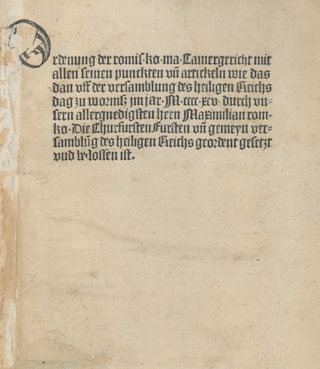 Ordenung der romis·ko·ma·Camergericht mit
allen seinen punckten vñ artickeln wie das
dan vff der versamblung des heiligen Reichs
dag zu wormß jm jar·M·cccc·xcv·durch vn⸗
sern allergnedigsten hern Maximilian rom⸗
ko·Die Churfursten Fursten vñ gemeyn ver⸗
samblũg des heiligen Reichs geordent gesetzt
vnd ist.